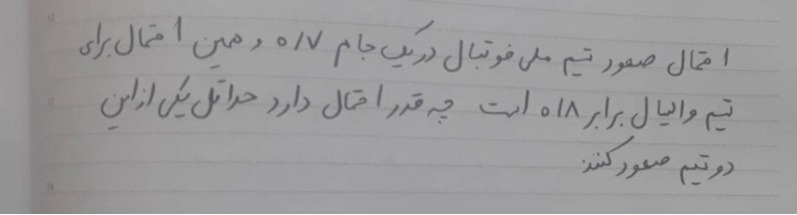 احتمال صعود تیم ملی فوتبال در یک جام ۰/۷ و همین احتمال برای
تیم والیبال برابر ۰/۸ است چه قدر احتمال دارد حداقل یکی از این
دو تیم صعود کنند